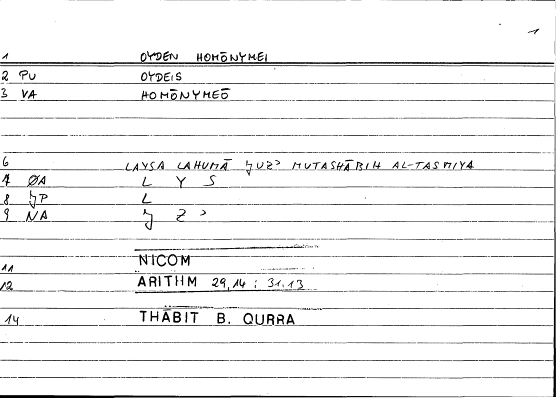 1
1 OYDEN HOMŌNYMEI
2 PU OYDEIS
3 VA HOMŌNYMEŌ
6 LAYSA LAHUMĀ ǦUZʾ MUTASHĀBIH AL-TASMIYA
7 ØA L Y S
8 ǦP L
9 NA Ǧ Z ʾ
11 NICOM
12 ARITHM 29,14 : 31.13
14 THĀBIT B. QURRA